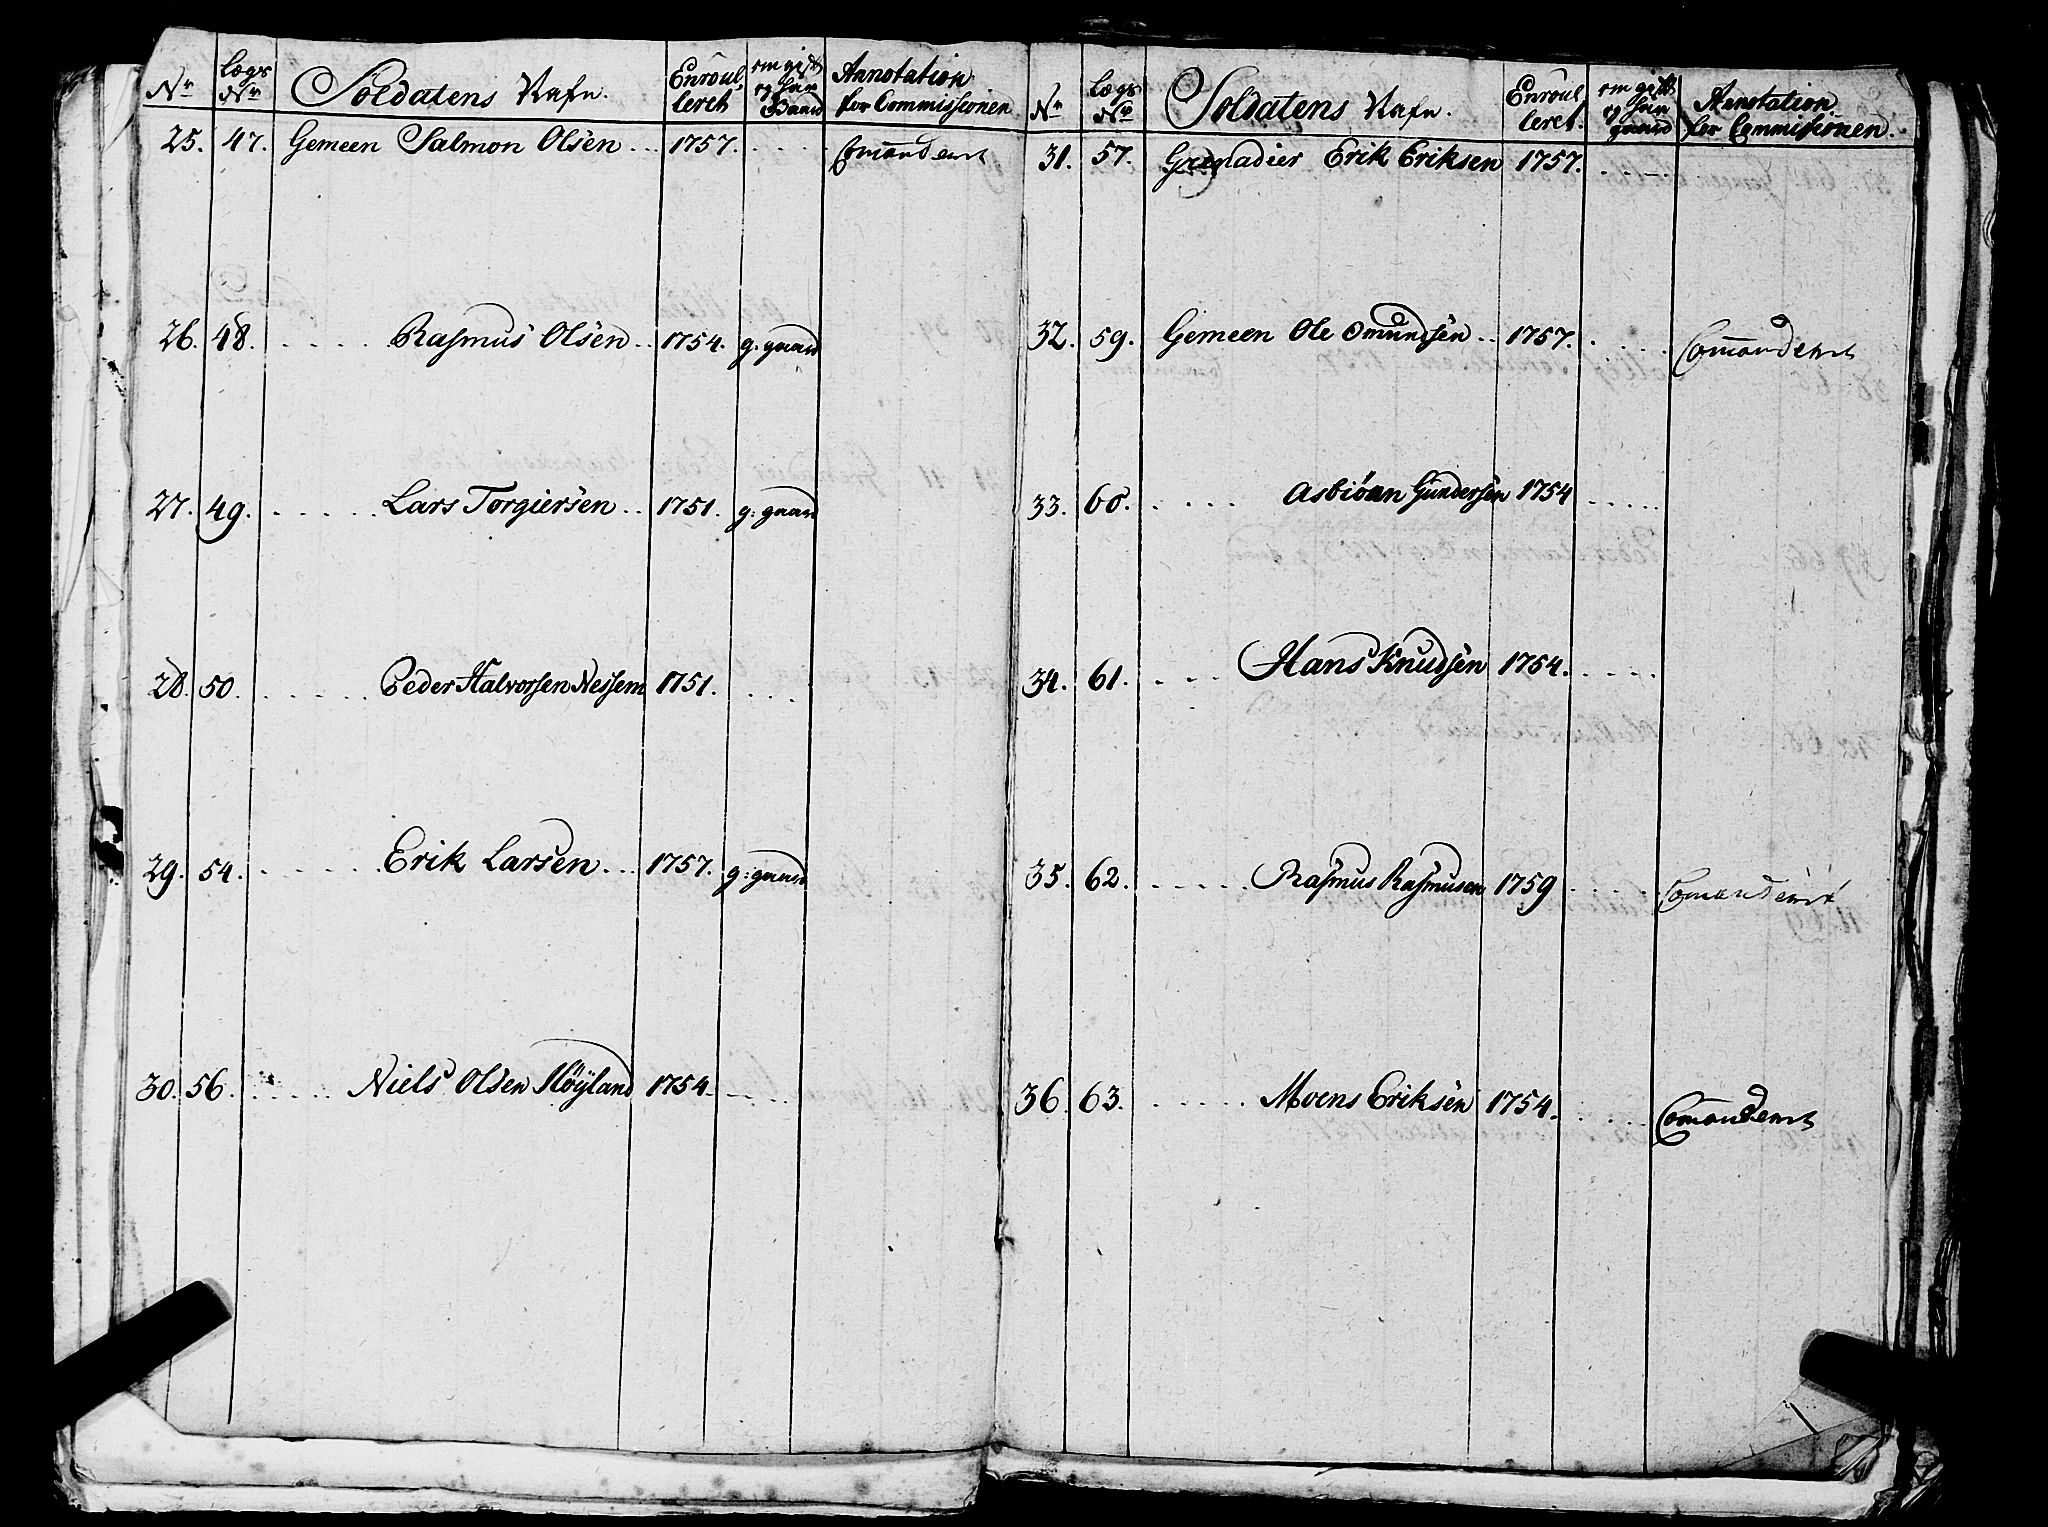 Nr Lægs Nr Soldatens Nafn. Enroulleret om gift og har Gaard Annotation for Commissionen
25. 47. Gemeen Salmon Olsen .. 1757. . . . Comanderet
26. 48. . . . . Rasmus Olsen .. 1754. g. gaard
27. 49. . . . . . Lars Torgiersen .. 1751. g: gaard
28. 50. . . . . . Peder Halvorsen Nessem 1751. . . .
29. 54. . . . . . Erik Larsen ... 1757. g: gaard
30. 56. . . . . . Niels Olsen Høyland 1754. . . .
Nr Lægs Nr Soldatens Nafn. Enroulleret. om gift og har gaard Annotation for Commissionen.
31. 57. Grenadier Erik Eriksen 1757. . . . .
32. 59. Gemeen Ole Omundsen .. 1757. . . . . Comanderet
33. 60. . . . . Asbiøen Gundersen 1754 . . . . .
34. 61. . . . Hans Knudsen 1754. . . . .
35. 62. . . . . . Rasmus Rasmusen 1759 . . . . . Comanderet
36. 63. . . . . . Moens Eriksen 1754. . . . . Comanderet